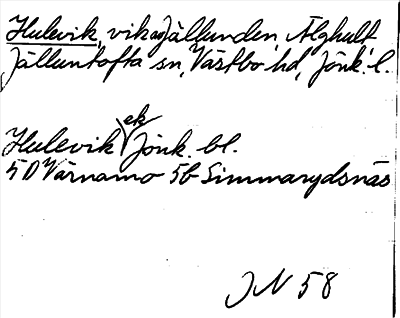 Hulevik, vik av Jällunden, Älghult
Jälluntofta sn, Västbo hd, Jönk. l.
Hulevik ek Jönk. bl.
5D Värnamo 5b Simmarydsnäs
JN 58